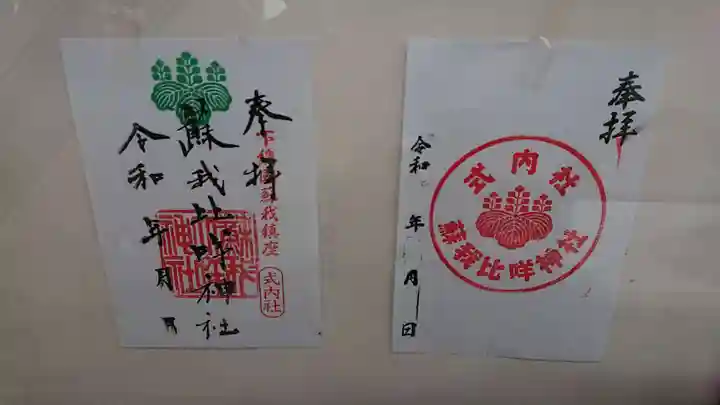 奉拝
下総國蘇我鎮座
式内社
蘇我比咩神社
令和 年 月 日
奉拝
式内社
蘇我比咩神社
令和 年 月 日